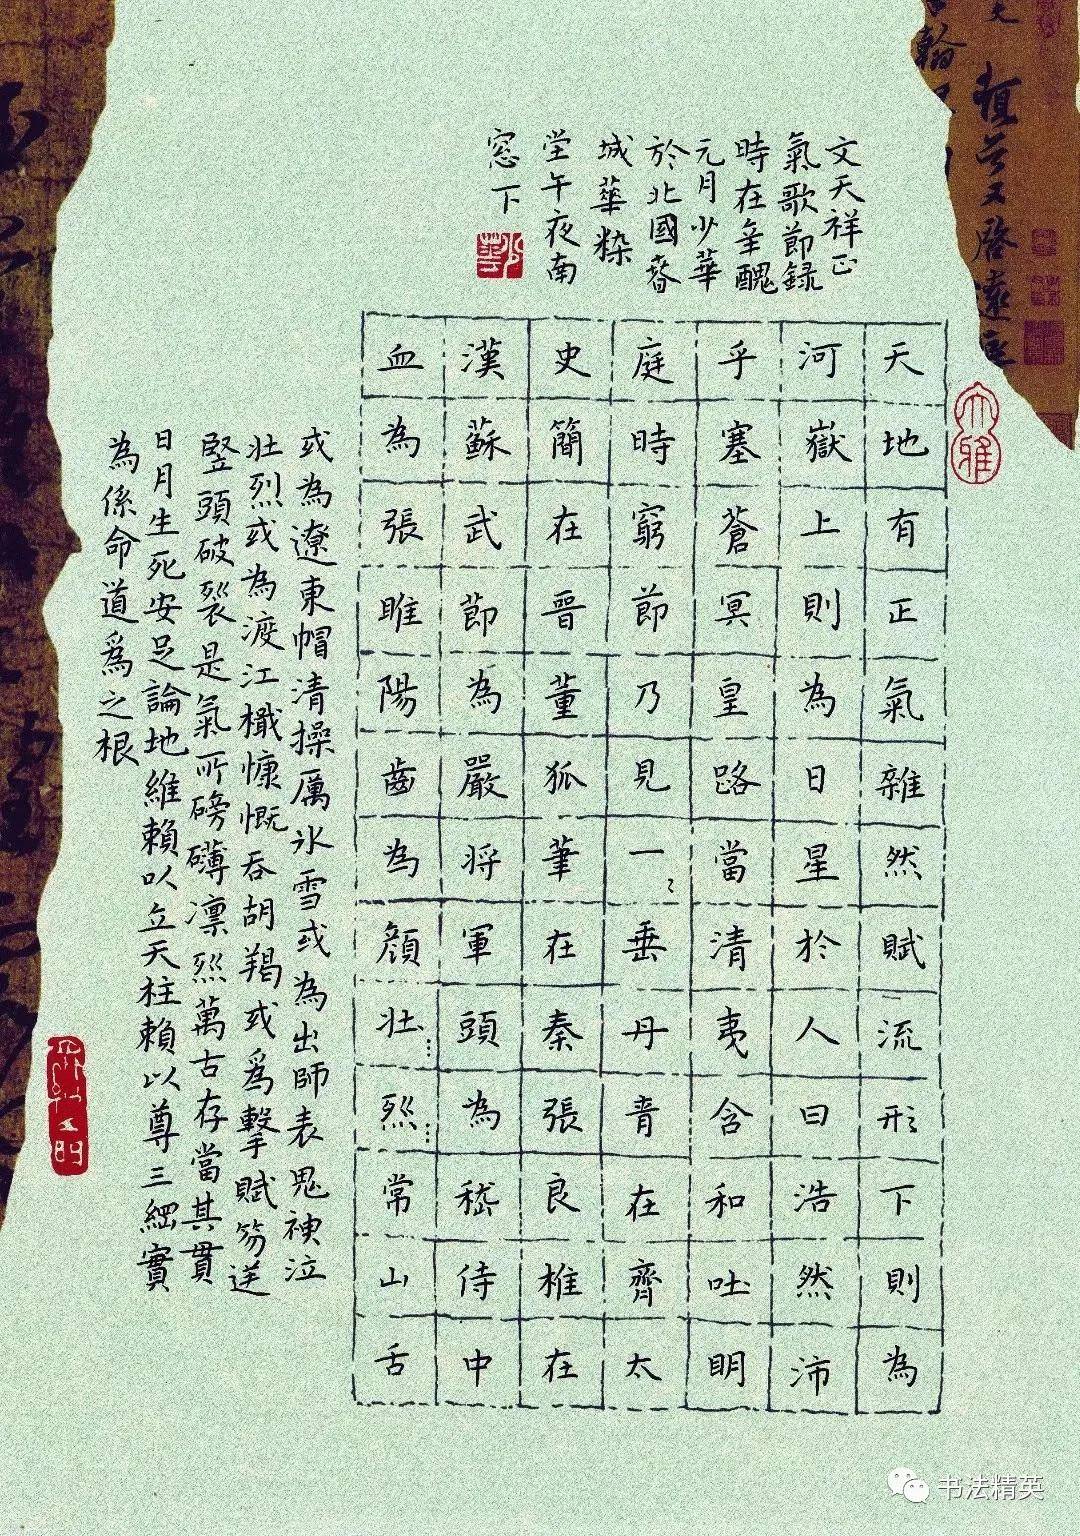 文天祥正
氣歌節録
時在辛醜
元月少華
於北國春
城華粢
堂午夜南
窓下
少華
大雅
天地有正氣雜然賦流形下則為
河嶽上則為日星於人曰浩然沛
乎塞蒼冥皇路當清夷含和吐明
庭時窮節乃見一〻垂丹青在齊太
史簡在晉董狐筆在秦張良椎在
漢蘇武節為嚴将軍頭為嵇侍中
血為張睢陽齒為顏壯烈常山舌
或為遼東帽清操厲氷雪或為出師表鬼神泣
壯烈或為渡江檝慷慨吞胡羯或為擊賊笏逆
竪頭破裂是氣所磅礴凛烈萬古存當其貫
日月生死安足論地維賴以立天柱賴以尊三綱實
為係命道爲之根
书法精英